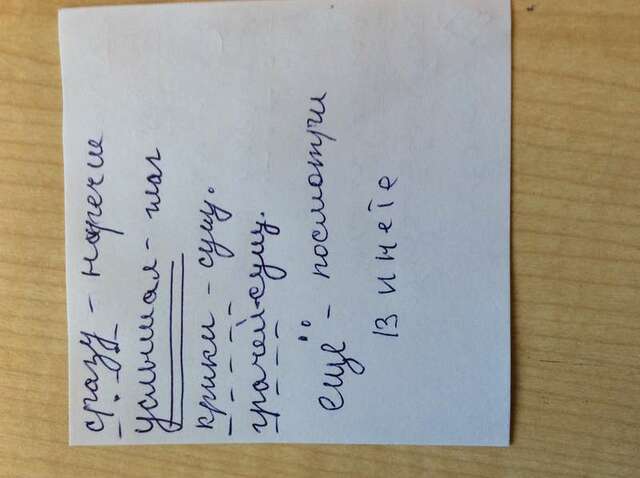 сразу - наречие
услышал - глаг
крики - сущ.
грачей-сущ.
ещё - посмотри
в инете